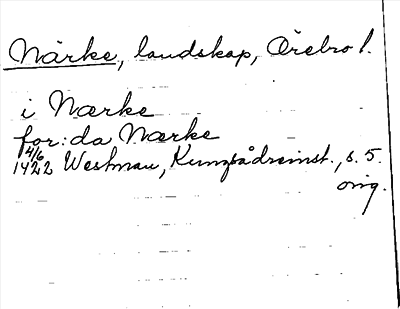 Närke, landskap, Örebro l.
i Nærke
for: da Nærke
4/6
1422 Westman, Kungsådreinst., s. 5.
orig.